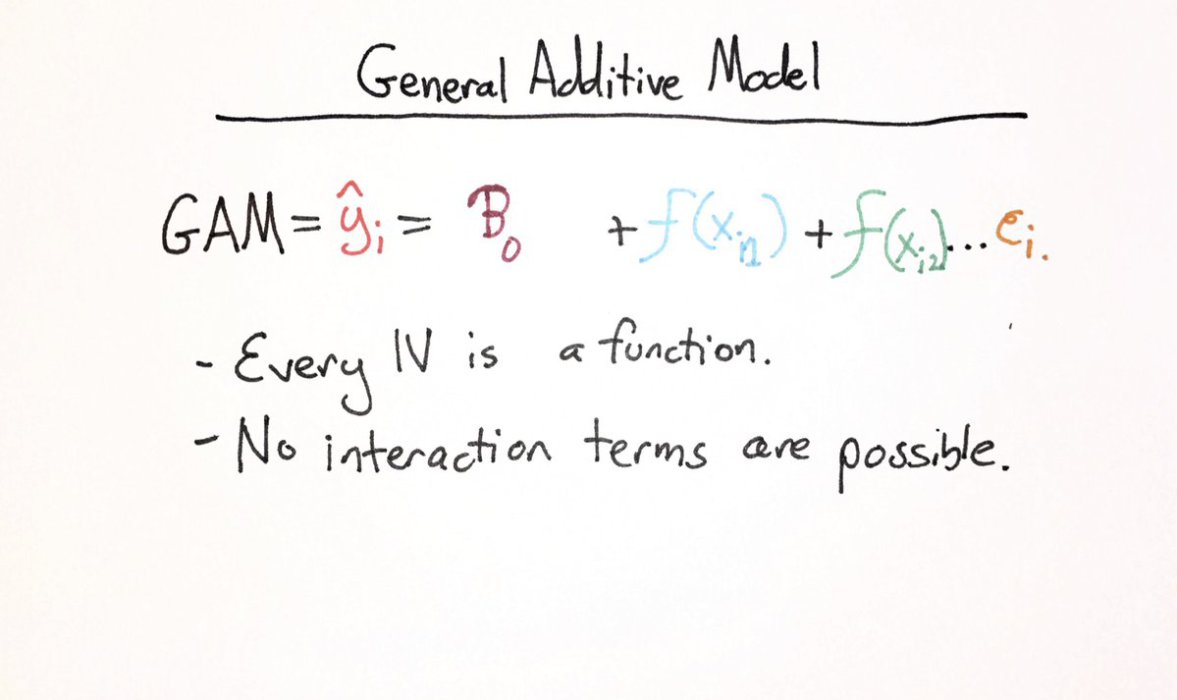 General Additive Model
GAM = ŷᵢ = B₀ + f(xᵢ₁) + f(xᵢ₂)... eᵢ.
- Every IV is a function.
- No interaction terms are possible.